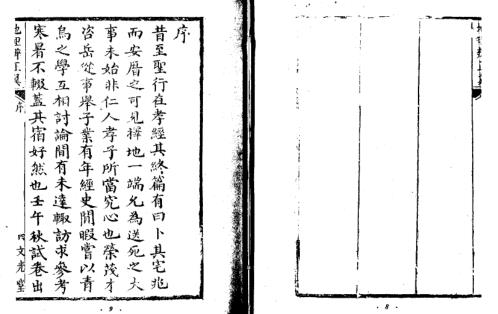 序
昔至聖行在孝經其終篇有曰卜其宅兆
而安厝之可見擇地一端允為送死之大
事未始非仁人孝子所當究心也榮茂才
岳從事舉子業有年經史閒暇嘗以青
烏之學互相討論間有未達輒訪求參考
寒暑不輟蓋其宿好然也壬午秋試卷出
地理辨正翼
序
文光堂
9
8